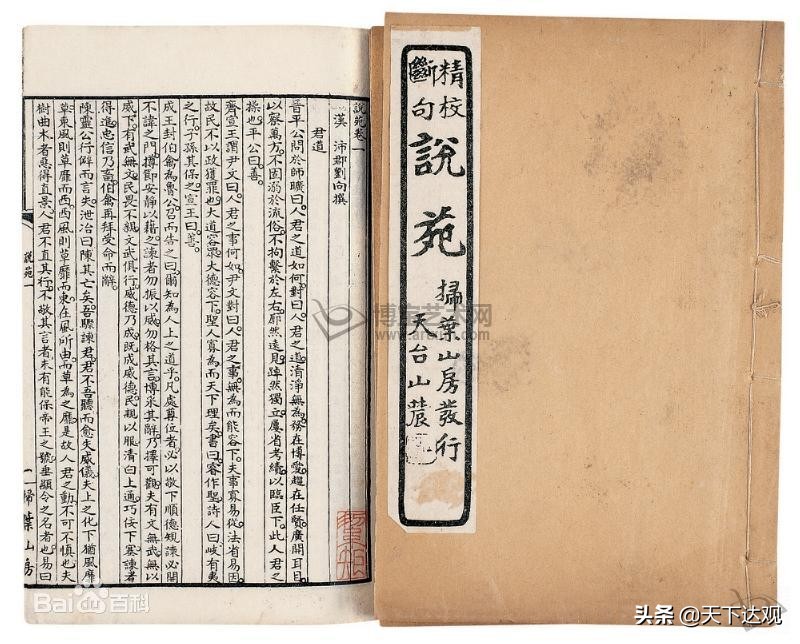 精校
斷句
說苑
掃葉山房發行
天台山農
說苑卷一
漢 沛郡劉向撰
君道
晉平公問於師曠曰人君之道如何對曰人君之道清淨無為務在博愛趨在任賢廣開耳目
以察萬方不固溺於流俗不拘繫於左右廓然遠見踔然獨立屢省考績以臨臣下此人君之
操也平公曰善
齊宣王謂尹文曰人君之事何如尹文對曰人君之事無為而能容下夫事寡易從法省易因
故民不以政獲罪也大道容眾大德容下聖人寡為而天下理矣書曰睿作聖詩人曰岐有夷
之行子孫其保之宣王曰善
成王封伯禽為魯公召而告之曰爾知為人上之道乎凡處尊位者必以敬下順德規諫必開
不諱之門撙節安靜以藉之諫者勿振以威勿格其言博采其辭乃擇可觀夫有文無武無以
威下有武無文民畏不親文武俱行威德乃成既成威德民親以服清白上通巧佞下塞諫者
得進忠信乃畜伯禽再拜受命而辭
陳靈公行僻而言失泄冶曰陳其亡矣吾驟諫君君不吾聽而愈失威儀夫上之化下猶風靡
草東風則草靡而西西風則草靡而東在風所由而草為之靡是故人君之動不可不慎也夫
樹曲木者惡得直景人君不直其行不敬其言者未有能保帝王之號垂顯令之名者也易曰
說苑一
一 掃葉山房
博宝艺术网
Baidu百科
头条 @天下达观